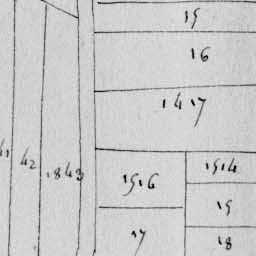 15
16
1417
41
42
1843
1516
1514
15
17
18